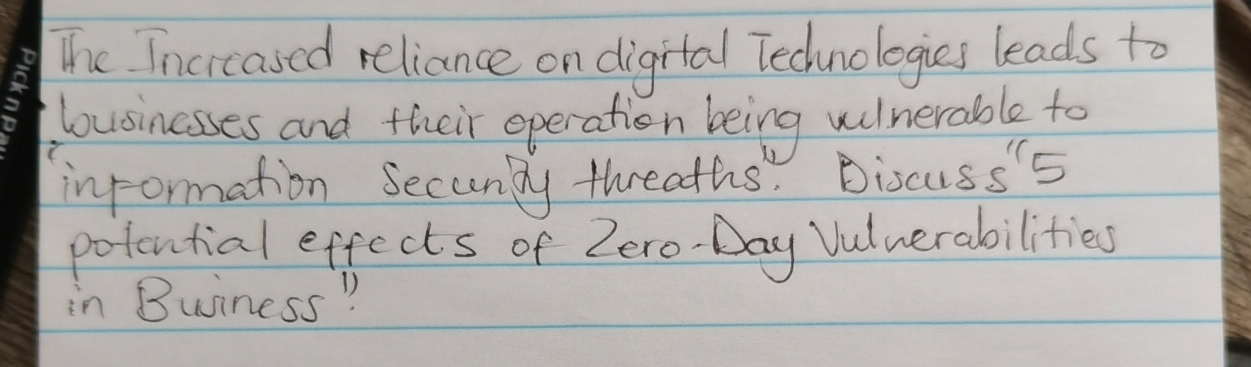 The Increased reliance on digital Technologies leads to
businesses and their operation being vulnerable to
"information Security threaths". Discuss "5
potential effects of Zero-Day Vulnerabilities
in Business".
Pick n Pay